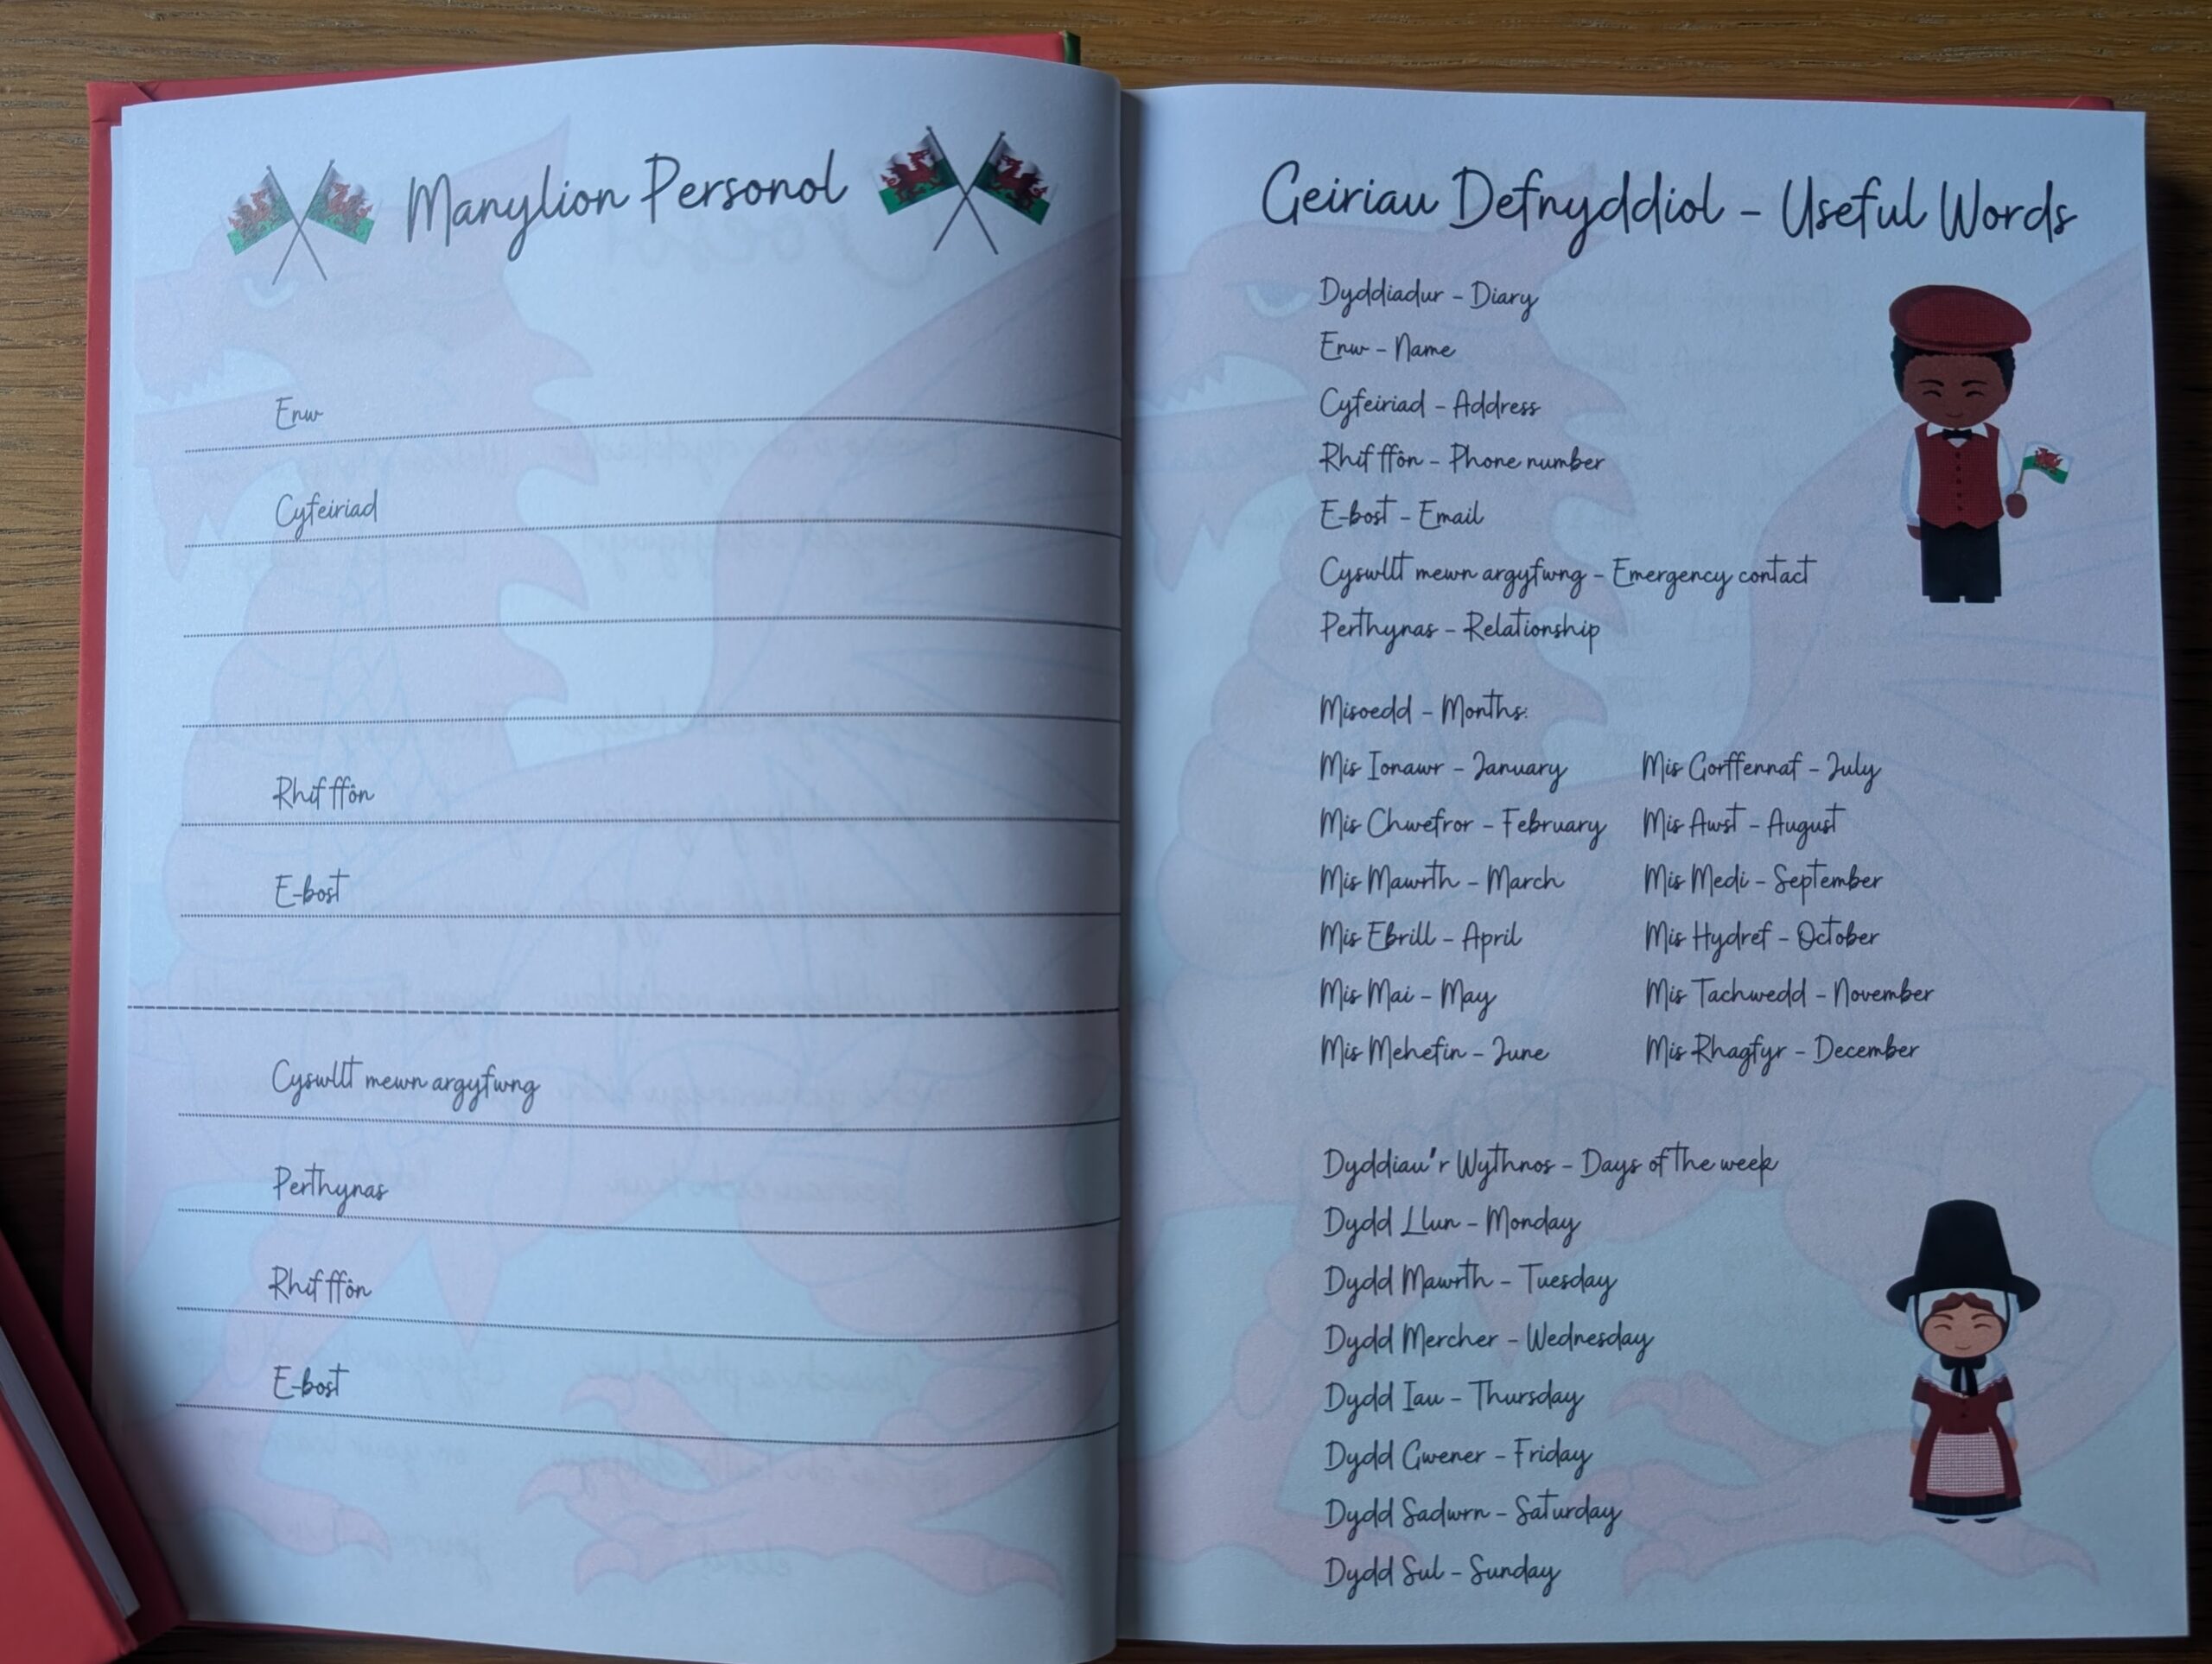 Manylion Personol
Enw
Cyfeiriad
Rhif ffôn
E-bost
Cyswllt mewn argyfwng
Perthynas
Rhif ffôn
E-bost
Geiriau Defnyddiol - Useful Words
Dyddiadur - Diary
Enw - Name
Cyfeiriad - Address
Rhif ffôn - Phone number
E-bost - Email
Cyswllt mewn argyfwng - Emergency contact
Perthynas - Relationship
Misoedd - Months:
Mis Ionawr - January
Mis Chwefror - February
Mis Mawrth - March
Mis Ebrill - April
Mis Mai - May
Mis Mehefin - June
Mis Gorffennaf - July
Mis Awst - August
Mis Medi - September
Mis Hydref - October
Mis Tachwedd - November
Mis Rhagfyr - December
Dyddiau'r Wythnos - Days of the week
Dydd Llun - Monday
Dydd Mawrth - Tuesday
Dydd Mercher - Wednesday
Dydd Iau - Thursday
Dydd Gwener - Friday
Dydd Sadwrn - Saturday
Dydd Sul - Sunday